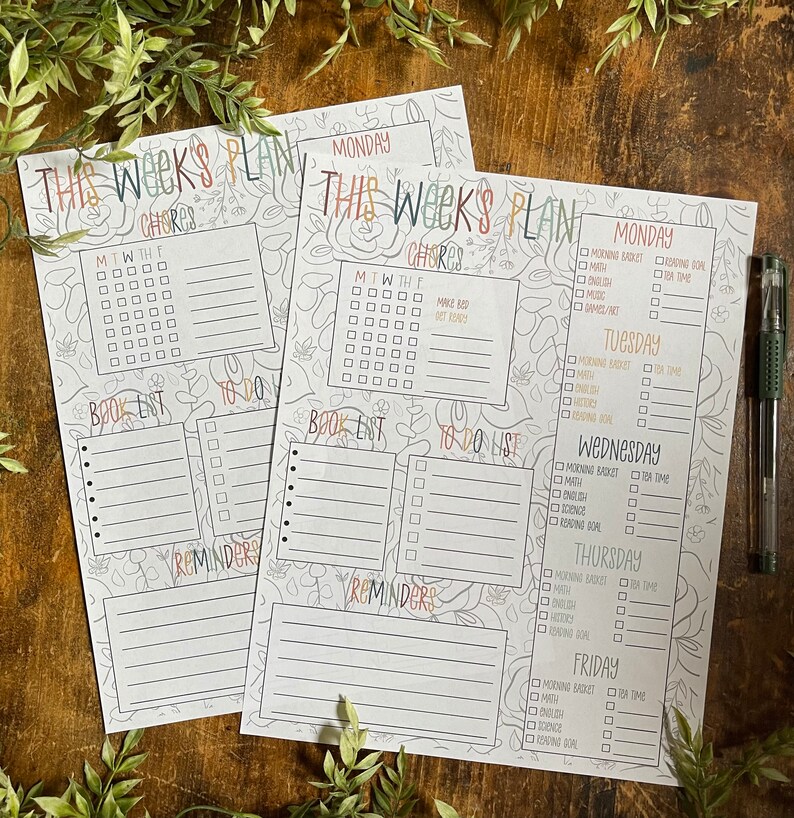 THIS WEEK'S PLAN
MONDAY
CHORES
M T W TH F
BOOK LIST
TO DO LIST
REMINDERS
THIS WEEK'S PLAN
CHORES
M T W TH F
MAKE BED
GET READY
BOOK LIST
TO DO LIST
REMINDERS
MONDAY
MORNING BASKET READING GOAL
MATH TEA TIME
ENGLISH
MUSIC
GAMES/ART
TUESDAY
MORNING BASKET TEA TIME
MATH
ENGLISH
HISTORY
READING GOAL
WEDNESDAY
MORNING BASKET TEA TIME
MATH
ENGLISH
SCIENCE
READING GOAL
THURSDAY
MORNING BASKET TEA TIME
MATH
ENGLISH
HISTORY
READING GOAL
FRIDAY
MORNING BASKET TEA TIME
MATH
ENGLISH
SCIENCE
READING GOAL